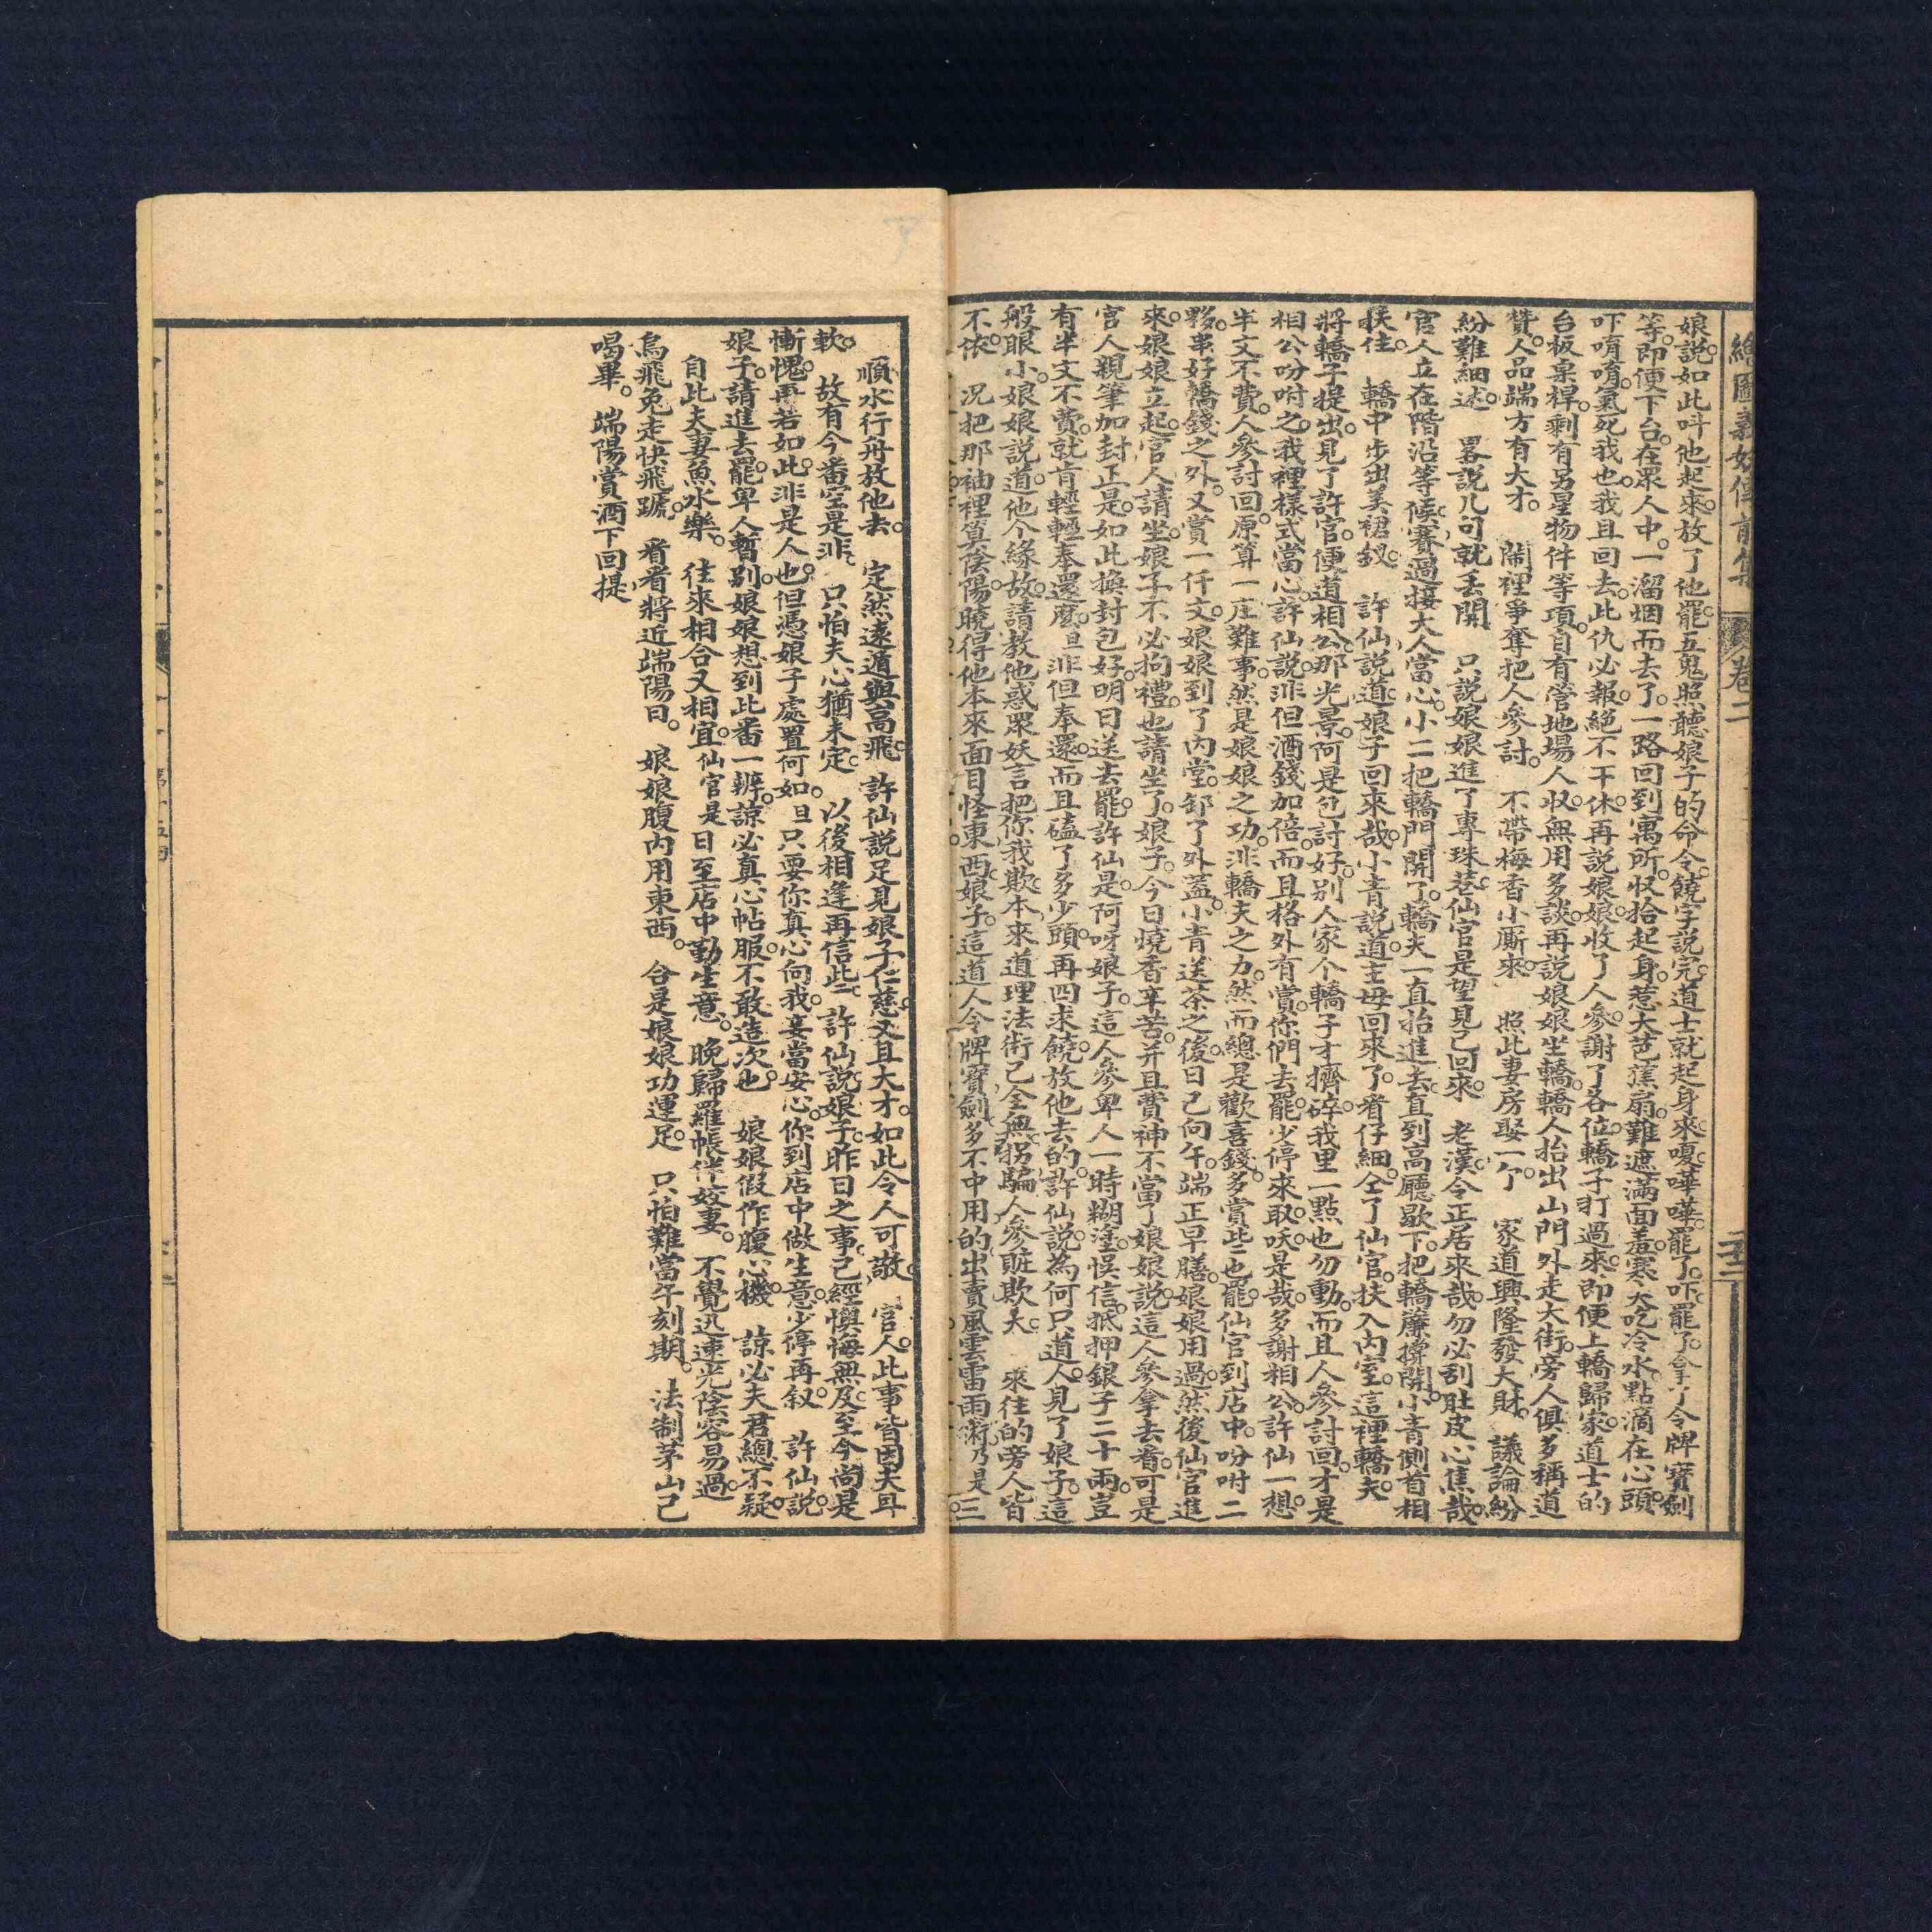 繪圖義妖傳前集 卷二
娘說如此呌他起來放了他罷五鬼照聽娘子的命令饒字說完道士就起身來嗄嘩嘩罷了吓罷了拿了令牌寶劍
等即便下台在眾人中一溜烟而去了一路回到寓所收拾起身惹大芭蕉扇難遮滿面羞寒天吃冷水點滴在心頭
吓唷唷氣死我也我且回去此仇必報絕不干休再說娘娘收了人參謝了各位轎子打過來即便上轎歸家道士的
台板桌檯剩有另星物件等項自有管地場人収無用多談再說娘娘坐轎轎人抬出山門外走大街旁人俱多稱道
贊人品端方有大才 鬧裡爭奪把人參討 不帶梅香小廝來 照此妻房娶一个 家道興隆發大財 議論紛
紛難細述 畧說几句就丟開 只說娘娘進了專珠巷仙官是望見已回來 老漢令正居來哉勿必刮肚皮心焦哉
官人立在階沿等候賽過接大人當心小二把轎門開了轎夫一直抬進去直到高廳歇下把轎簾撐開小青側首相
扶住 轎中步出美裙釵 許仙說道娘子回來哉小青說道主母回來了看仔細仝了仙官扶入內室這裡轎夫
將轎子提出見了許官便道相公那光景阿是包討好别人家个轎子才擠碎我里一點也勿動而且人參討回才是
相公吩咐之我裡樣式當心許仙說非但酒錢加倍而且格外有賞你們去罷少停來取吷是哉多謝相公許仙一想
半文不費人參討回原算一庄難事然是娘娘之功非轎夫之力然而總是歡喜錢多賞些也罷仙官到店中吩咐二
夥串好轎錢之外又賞一仟文娘娘到了內堂卸了外蓋小青送茶之後日已向午端正早膳娘娘用過然後仙官進
來娘娘立起官人請坐娘子不必拘禮也請坐了娘子今日燒香辛苦并且費神不當了娘娘說這人參拿去看可是
官人親筆加封正是如此換封包好明日送去罷許仙是阿呀娘子這人參卑人一時糊塗悞信抵押銀子二十兩豈
有半文不費就肯輕輕奉還麽旦非但奉還而且磕了多少頭再四求饒放他去的許仙說為何只道人見了娘子這
般眼小娘娘說道他个緣故請教他惑眾妖言把你我欺本來道理法術已全無拐騙人參賍欺夫 來往的旁人皆
不依 况把那袖裡算陰陽曉得他本來面目怪東西娘子這道人令牌寶劍多不中用的出賣風雲雷雨術乃是三
順水行舟放他去 定然遠遁與高飛 許仙說足見娘子仁慈又且大才如此令人可敬 官人此事皆因夫耳
軟 故有今番空是非 只怕夫心猶未定 以後相逢再信此 許仙說娘子昨日之事已經懊悔無及至今尚是
慚愧再若如此非是人也但憑娘子處置何如旦只要你真心向我妾當安心你到店中做生意少停再叙 許仙說
娘子請進去罷卑人暫别娘娘想到此番一辨諒必真心帖服不敢造次也 娘娘假作腹心機 諒必夫君總不疑
自此夫妻魚水樂 往來相合又相宜仙官是日至店中勤生意晚歸羅帳伴姣妻 不覺迅速光陰容易過
烏飛兔走快飛蹏 看看將近端陽日 娘娘腹內用東西 合是娘娘功運足 只怕難當午刻期 法制茅山已
喝畢 端陽賞酒下回提